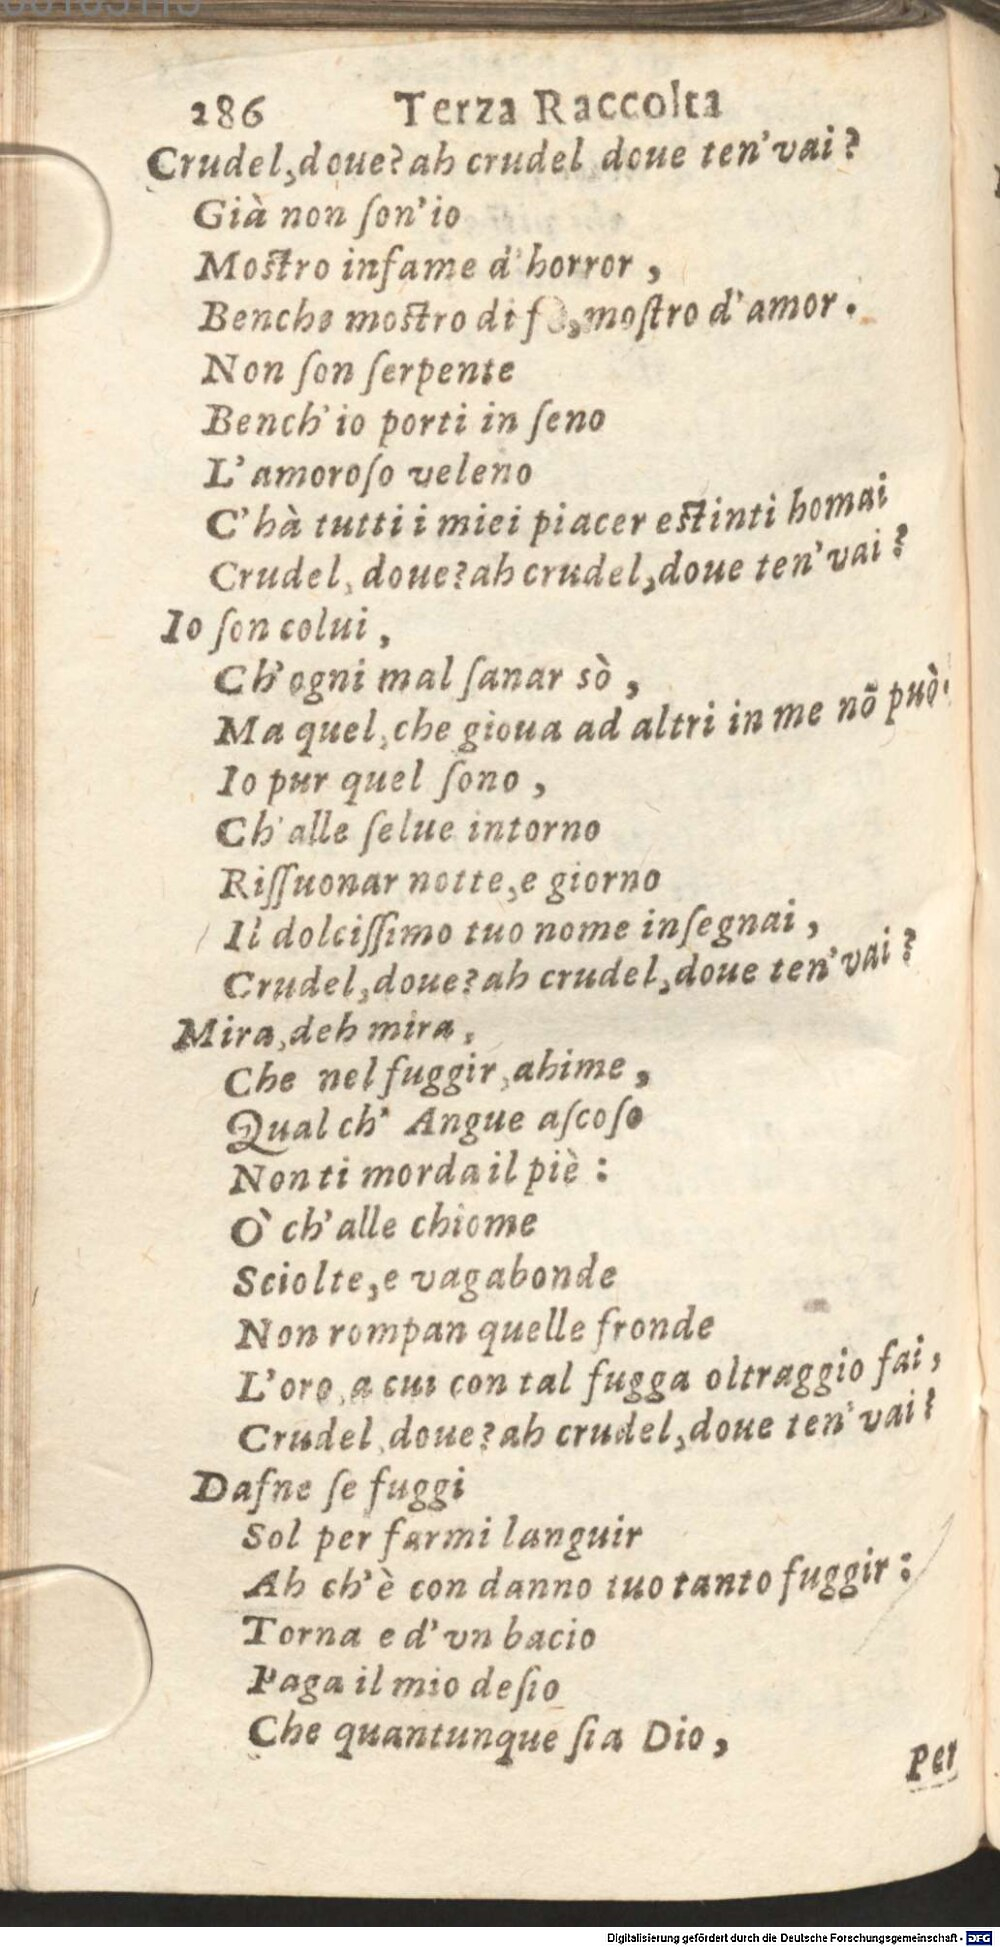 286 Terza Raccolta
Crudel, doue? ah crudel doue ten'vai?
Già non ſon'io
Moſtro infame d'horror,
Benche moſtro di moſtro d'amor.
Non ſon ſerpente
Bench'io porti in ſeno
L'amoroſo veleno
C'hà tutti i miei piacer eſtinti homai
Crudel, doue? ah crudel, doue ten'vai?
Io ſon colui,
Ch'ogni mal ſanar sò,
Ma quel, che gioua ad altri in me nō può.
Io pur quel ſono,
Ch'alle ſelue intorno
Riſſuonar notte, e giorno
Il dolciſſimo tuo nome inſegnai,
Crudel, doue? ah crudel, doue ten'vai?
Mira, deh mira,
Che nel fuggir, ahime,
Qual ch' Angue aſcoſo
Non ti morda il piè:
Ò ch'alle chiome
Sciolte, e vagabonde
Non rompan quelle fronde
L'oro, a cui con tal fugga oltraggio fai,
Crudel, doue? ah crudel, doue ten'vai?
Dafne ſe fuggi
Sol per farmi languir
Ah ch'è con danno tuo tanto fuggir:
Torna e d'vn bacio
Paga il mio deſio
Che quantunque ſia Dio,
Per
Digitalisierung gefördert durch die Deutsche Forschungsgemeinschaft - DFG